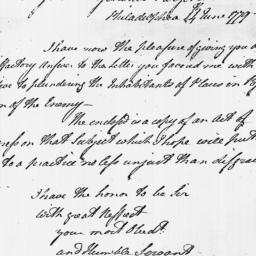 Philadelphia 24 June 1779
I have now the pleasure of giving you a
factory Answer to the letter you favored me with
ive to plundering the Inhabitants of Places in
n of the Enemy—
The enclosed is a copy of an act of
ress on that Subject which I hope will put
to a practice no less unjust than disgrac
I have the honor to be Sir
with great Respect
your most Obedt.
and Humble Servant